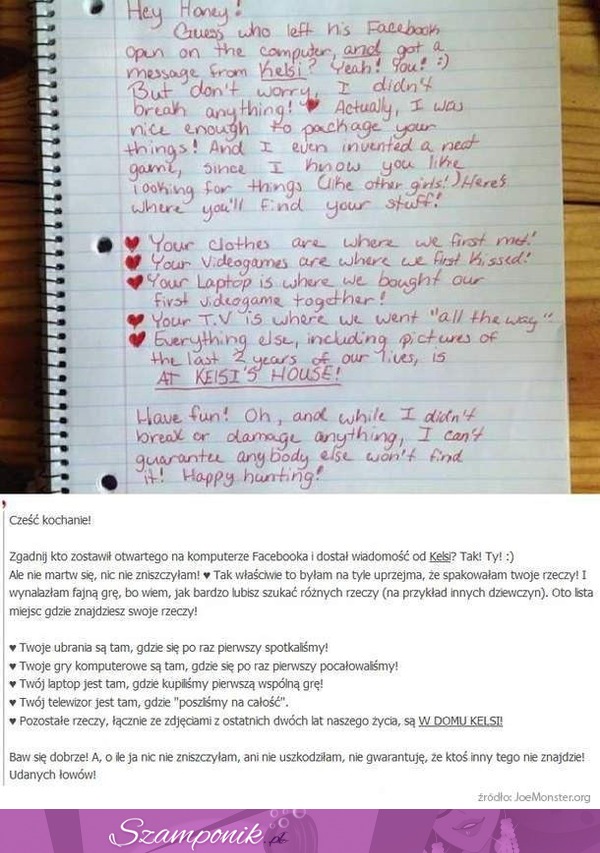 Hey Honey!
Guess who left his Facebook
open on the computer, and got a
message from Kelsi? Yeah! You! :)
But don't worry, I didn't
break anything! ♥ Actually, I was
nice enough to package your
things! And I even invented a neat
game, since I know you like
looking for things (like other girls!) Here's
where you'll find your stuff!
♥ Your clothes are where we first met!
♥ Your videogames are where we first kissed!
♥ Your Laptop is where we bought our
first videogame together!
♥ Your T.V is where we went "all the way".
♥ Everything else, including pictures of
the last 2 years of our lives, is
AT KELSI'S HOUSE!
Have fun! Oh, and while I didn't
break or damage anything, I can't
guarantee anybody else won't find
it! Happy hunting!
Cześć kochanie!
Zgadnij kto zostawił otwartego na komputerze Facebooka i dostał wiadomość od Kelsi? Tak! Ty! :)
Ale nie martw się, nic nie zniszczyłam! ♥ Tak właściwie to byłam na tyle uprzejma, że spakowałam twoje rzeczy! I
wynalazłam fajną grę, bo wiem, jak bardzo lubisz szukać różnych rzeczy (na przykład innych dziewczyn). Oto lista
miejsc gdzie znajdziesz swoje rzeczy!
♥ Twoje ubrania są tam, gdzie się po raz pierwszy spotkaliśmy!
♥ Twoje gry komputerowe są tam, gdzie się po raz pierwszy pocałowaliśmy!
♥ Twój laptop jest tam, gdzie kupiliśmy pierwszą wspólną grę!
♥ Twój telewizor jest tam, gdzie "poszliśmy na całość".
♥ Pozostałe rzeczy, łącznie ze zdjęciami z ostatnich dwóch lat naszego życia, są W DOMU KELSI!
Baw się dobrze! A, o ile ja nic nie zniszczyłam, ani nie uszkodziłam, nie gwarantuję, że ktoś inny tego nie znajdzie!
Udanych łowów!
źródło: JoeMonster.org
Szamponik.pl